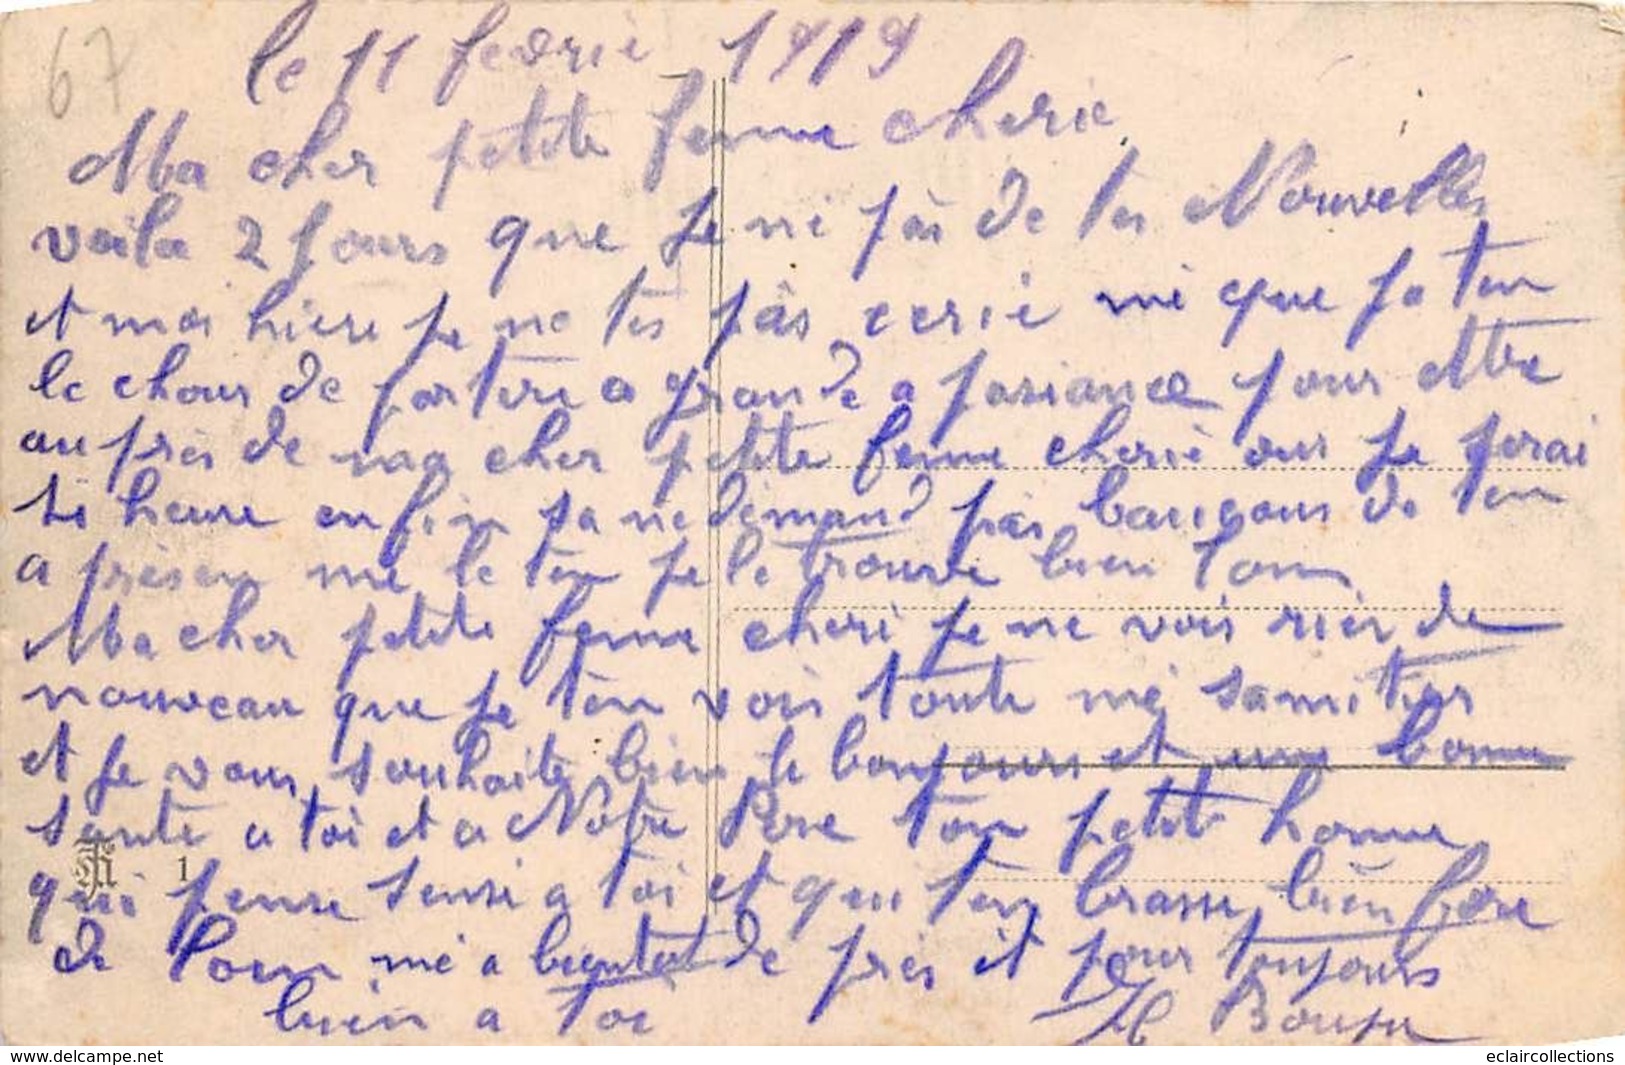 67
le 11 fevrié 1919
Ma cher petite femme cherie
voila 2 jours que je né pas de tes Nouvelles
et moi hiere je ne tes pas ecrié mé que ja ten
le chour de partire a grande a pasiance pour Aître
au près de ma cher petite femme cherié ous je serai
si heure enfin sa ne demand pas baucous de ten
a présen mé le ten je le trouve bien loin
Ma cher petite femme cheri je ne vois rièn de
nouveau que je tèn vois toute mé samitier
et je vous souhaite bien le bonjours et une bonne
sante a toi et a Notre Père ton petit homme
qui pense sense a toi et qui tèn brasse bièn fore
de loin mé a bientot de près et pour toujours
bien a toi
R 1
eclaircollections
www.delcampe.net